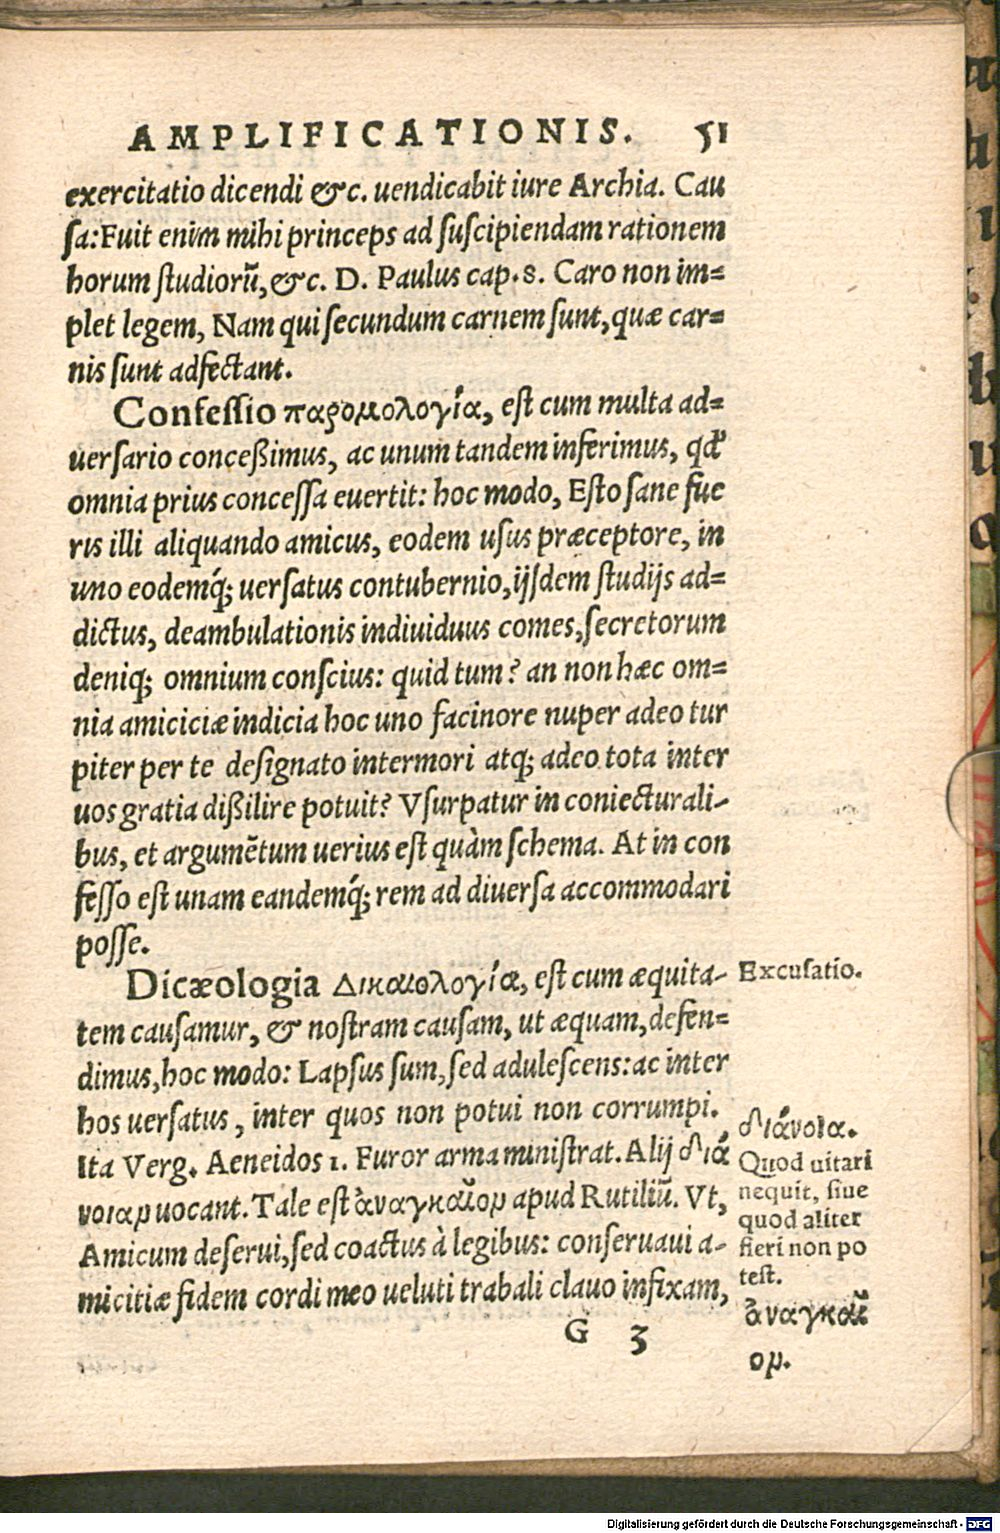 AMPLIFICATIONIS. 51
exercitatio dicendi &c. uendicabit iure Archia. Cau
ſa: Fuit enim mihi princeps ad ſuſcipiendam rationem
horum ſtudiorũ, &c. D. Paulus cap. 8. Caro non im=
plet legem, Nam qui ſecundum carnem ſunt, quæ car=
nis ſunt adfectant.
Confeſſio παρομολογία, eſt cum multa ad=
uerſario conceßimus, ac unum tandem inferimus, qđ
omnia prius conceſſa euertit: hoc modo, Eſto ſane fue
ris illi aliquando amicus, eodem uſus præceptore, in
uno eodemq́; uerſatus contubernio, ijſdem ſtudijs ad=
dictus, deambulationis indiuiduus comes, ſecretorum
deniq; omnium conſcius: quid tum? an non hæc om=
nia amiciciæ indicia hoc uno facinore nuper adeo tur
piter per te deſignato intermori atq; adeo tota inter
uos gratia dißilire potuit? Vſurpatur in coniecturali-
bus, et argumẽtum uerius eſt quàm ſchema. At in con
feſſo eſt unam eandemq́; rem ad diuerſa accommodari
poſſe.
Dicæologia Δικαιολογία, eſt cum æquita-
tem cauſamur, & noſtram cauſam, ut æquam, defen=
dimus, hoc modo: Lapſus ſum, ſed aduleſcens: ac inter
hos uerſatus, inter quos non potui non corrumpi.
Ita Verg. Aeneidos 1. Furor arma miniſtrat. Alij διά
νοιαν uocant. Tale eſt ἀναγκαῖον apud Rutiliũ. Vt,
Amicum deſerui, ſed coactus à legibus: conſeruaui a-
micitiæ fidem cordi meo ueluti trabali clauo infixam,
G 3
Excuſatio.
διάνοια.
Quod uitari
nequit, ſiue
quod aliter
fieri non po
teſt.
ἀναγκαῖ
ον.
Digitalisierung gefördert durch die Deutsche Forschungsgemeinschaft - DFG